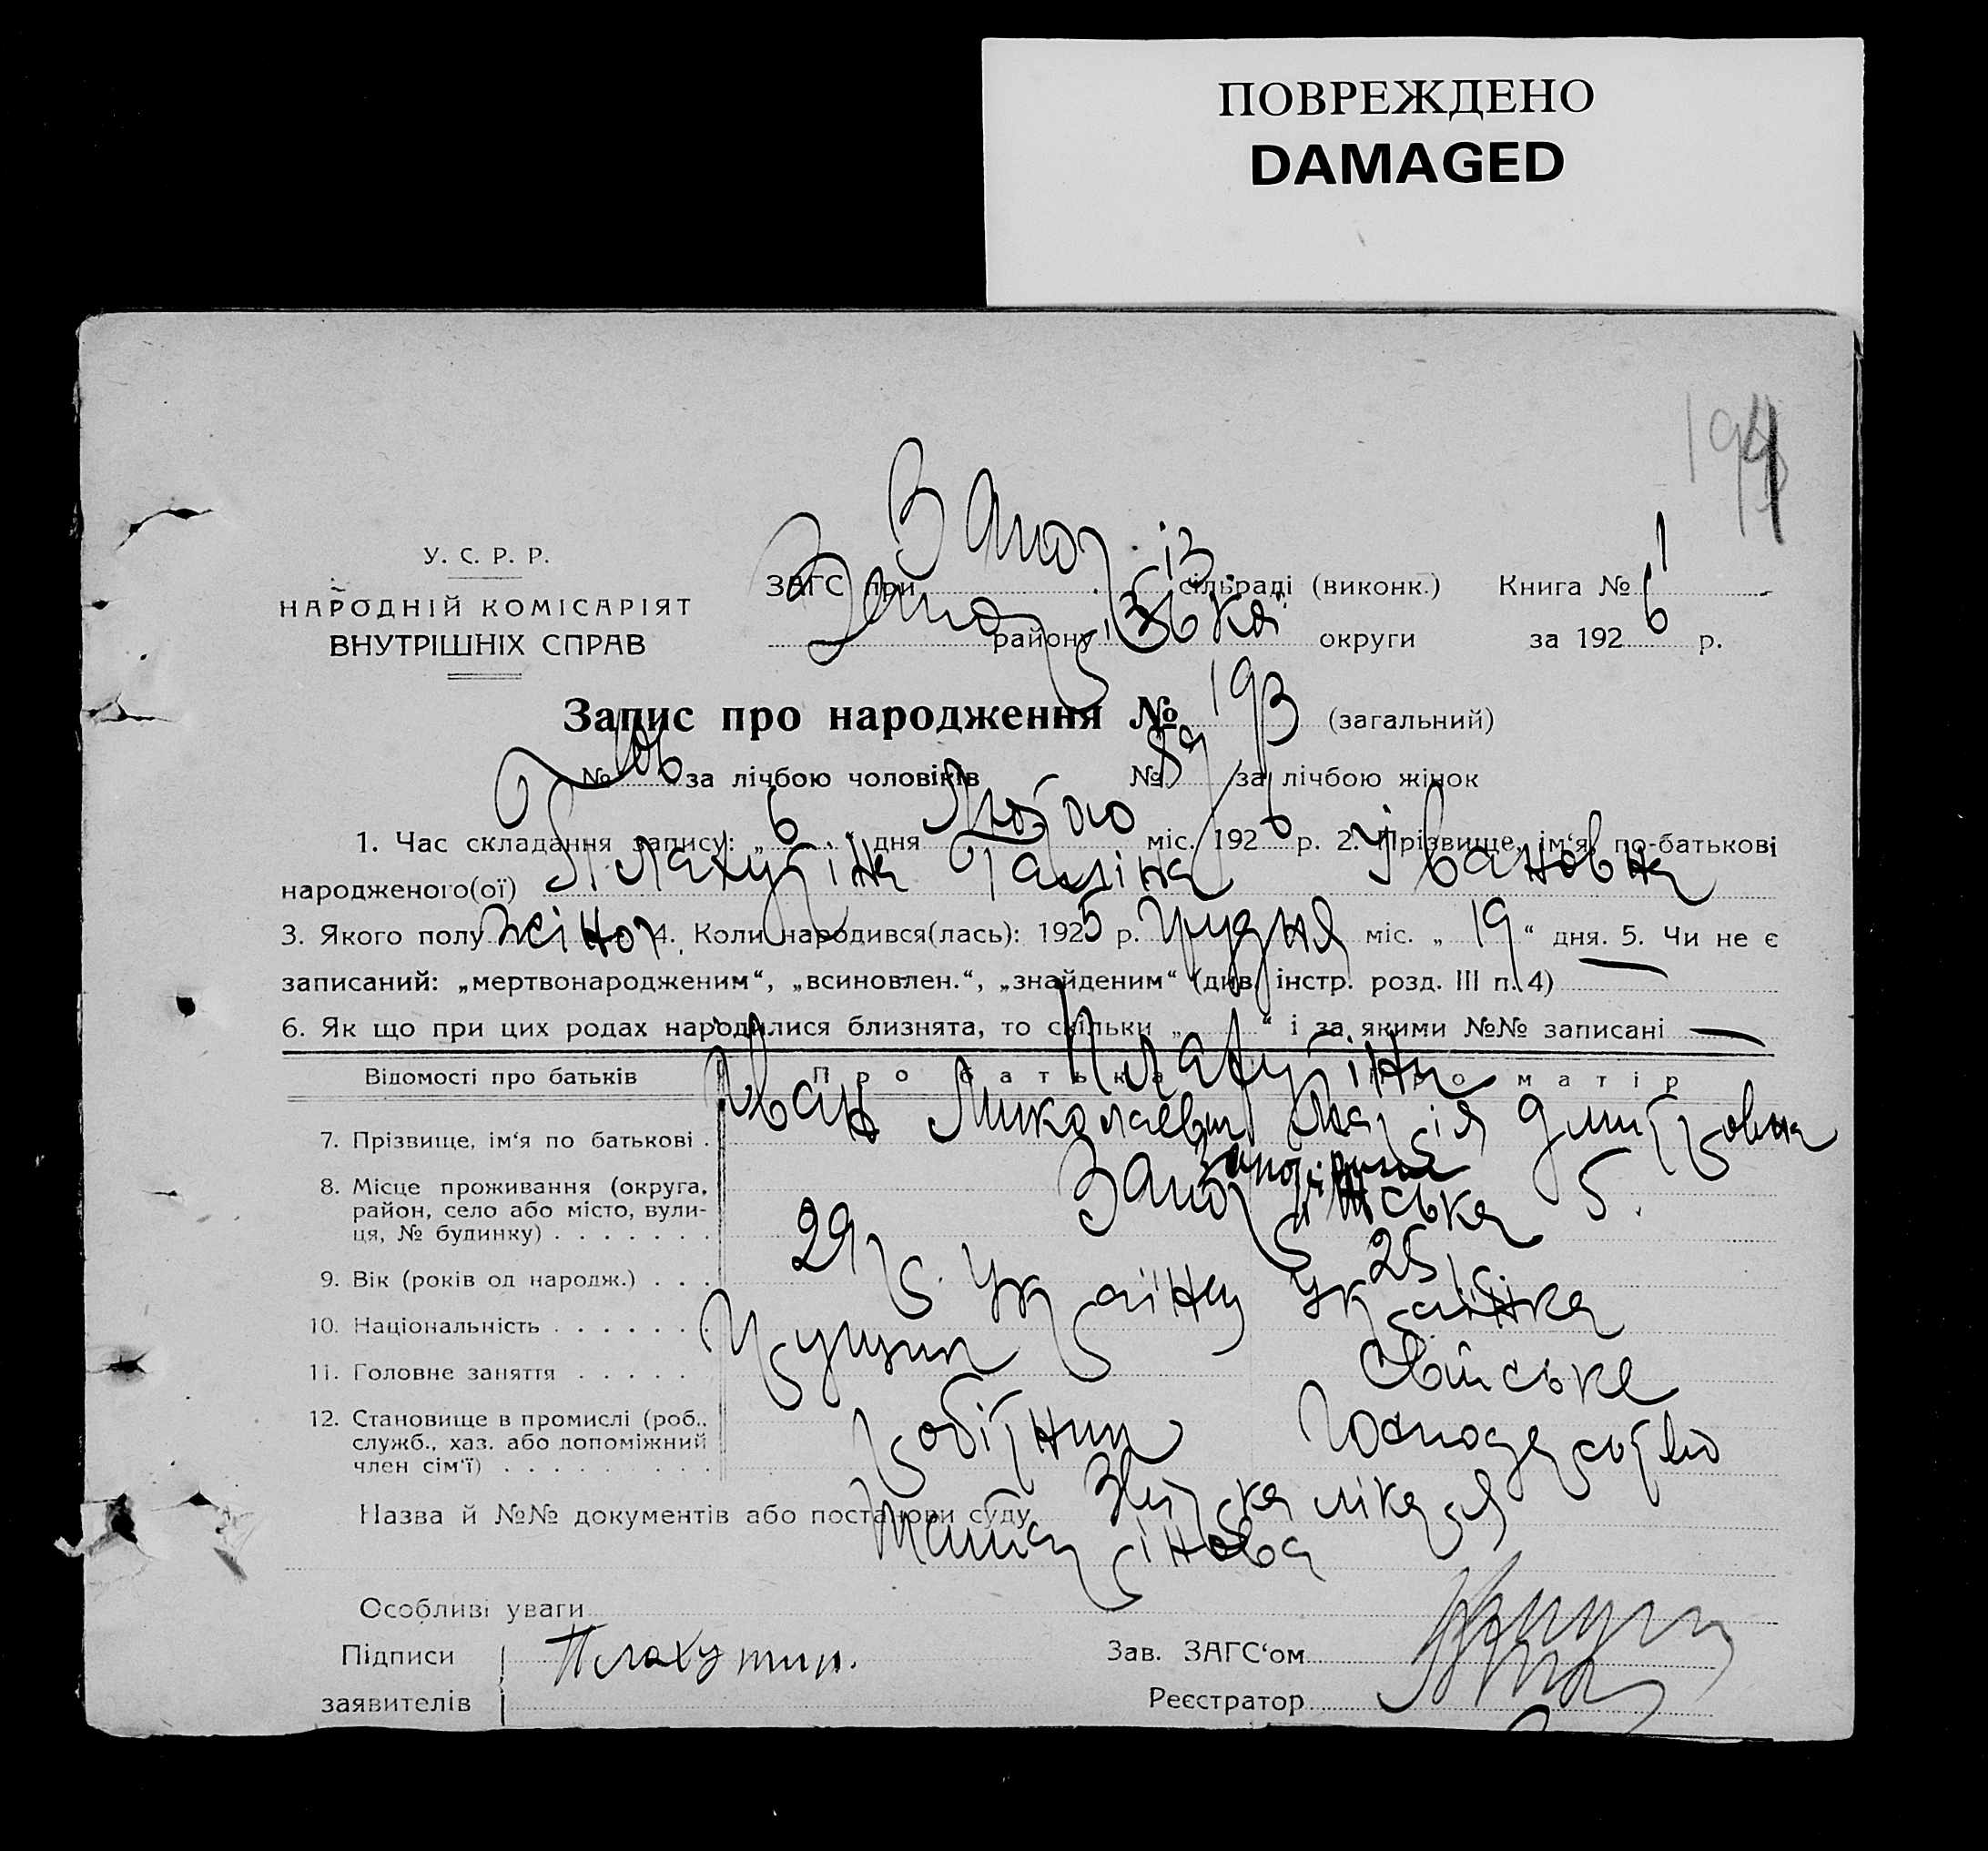 ПОВРЕЖДЕНО
DAMAGED
У. С. Р. Р.
НАРОДНІЙ КОМІСАРІЯТ
ВНУТРІШНІХ СПРАВ
ЗАГС при сільраді (виконк.) Книга № 1
району округи за 1926 р.
Запис про народження № 193 (загальний)
№ 106 за лічбою чоловіків № 89 за лічбою жінок
1. Час складання запису: „6“ дня Лютого міс. 1926 р. 2. Прізвище, ім‘я, по-батькові
народженого(ої) Плахутіна Галіна Івановна
3. Якого полу жіноч. 4. Коли народився(лась): 1925 р. Грудня міс. „19“ дня. 5. Чи не є
записаний: „мертвонародженим“, „всиновлен.“, „знайденим“ (див. інстр. розд. III п. 4) —
6. Як що при цих родах народилися близнята, то скільки „ “ і за якими №№ записані —
Відомості про батьків Про батька Про матір
Плахутіни
7. Прізвище, ім‘я по батькові . Іван Миколаевич Марія Дмитровна
8. Місце проживання (округа,
район, село або місто, вули-
ця, № будинку) . . . . . . . Запоріжська 5.
9. Вік (років од народж.) . . . 29 р. 25 р.
10. Національність . . . . . . . Українец Українка
11. Головне заняття . . . . . Свійське
12. Становище в промислі (роб.,
служб., хаз. або допоміжний
член сім‘ї) . . . . . . . . . робітник господарство
Назва й №№ документів або постанови суду лікаря
Особливі уваги
Підписи Плахутин.
заявителів
Зав. ЗАГС‘ом
Реєстратор